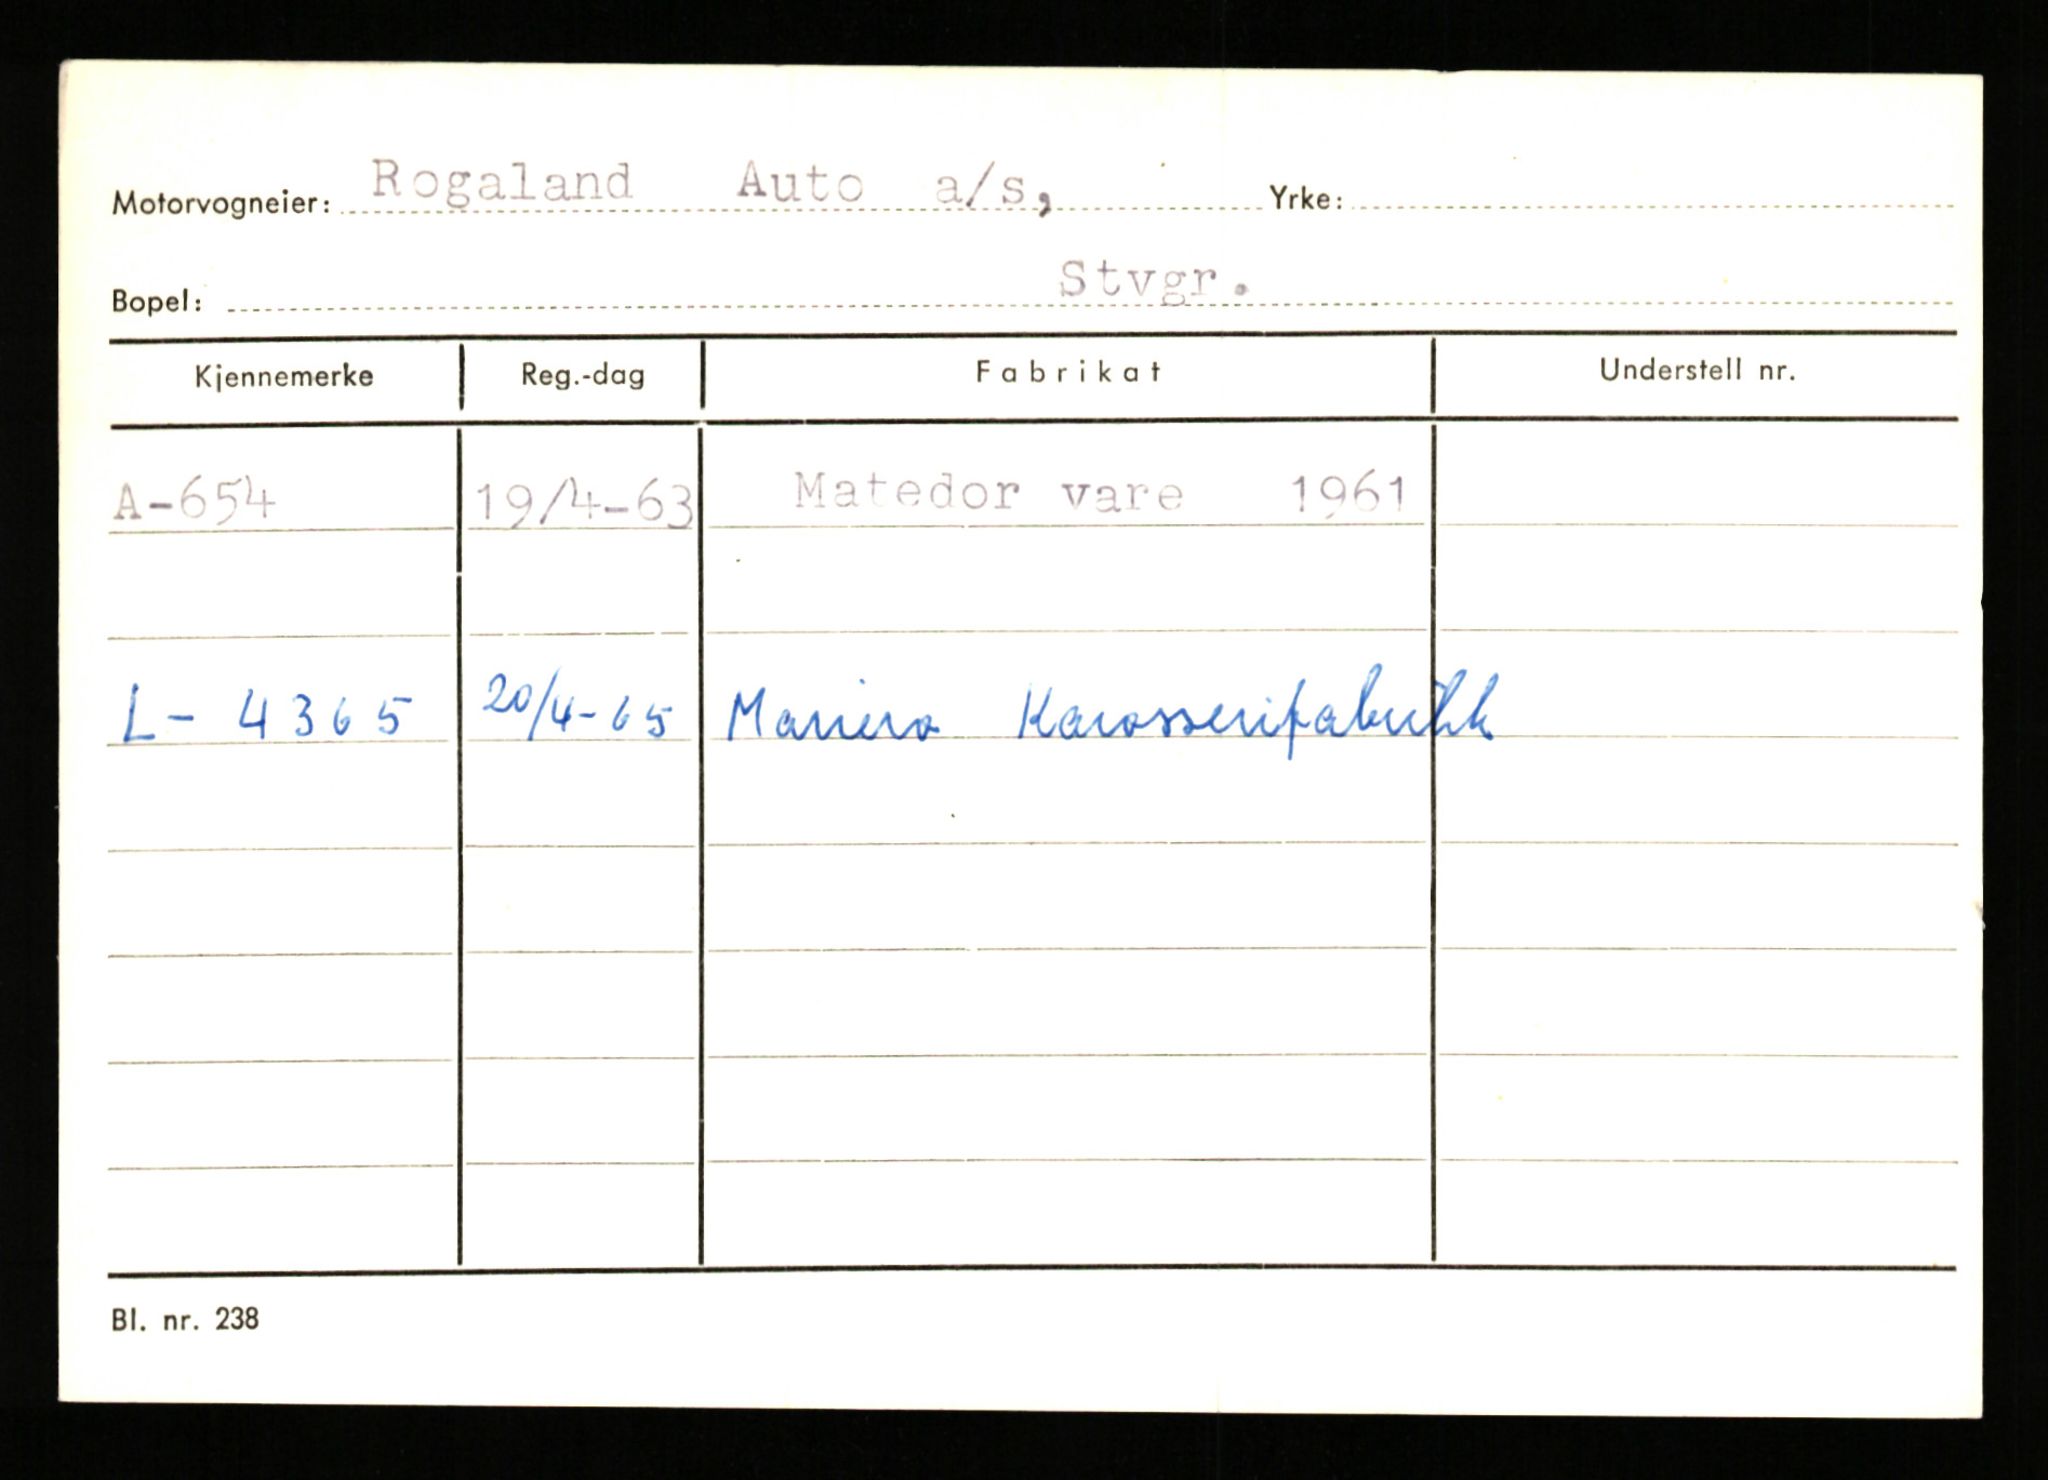 Motorvogneier: Rogaland Auto a/s, Yrke:
Bopel: Stvgr.
Kjennemerke Reg.-dag Fabrikat Understell nr.
A-654 19/4-63 Matedor vare 1961
L- 4365 20/4-65 Mariero Karosserifabrikk
Bl. nr. 238